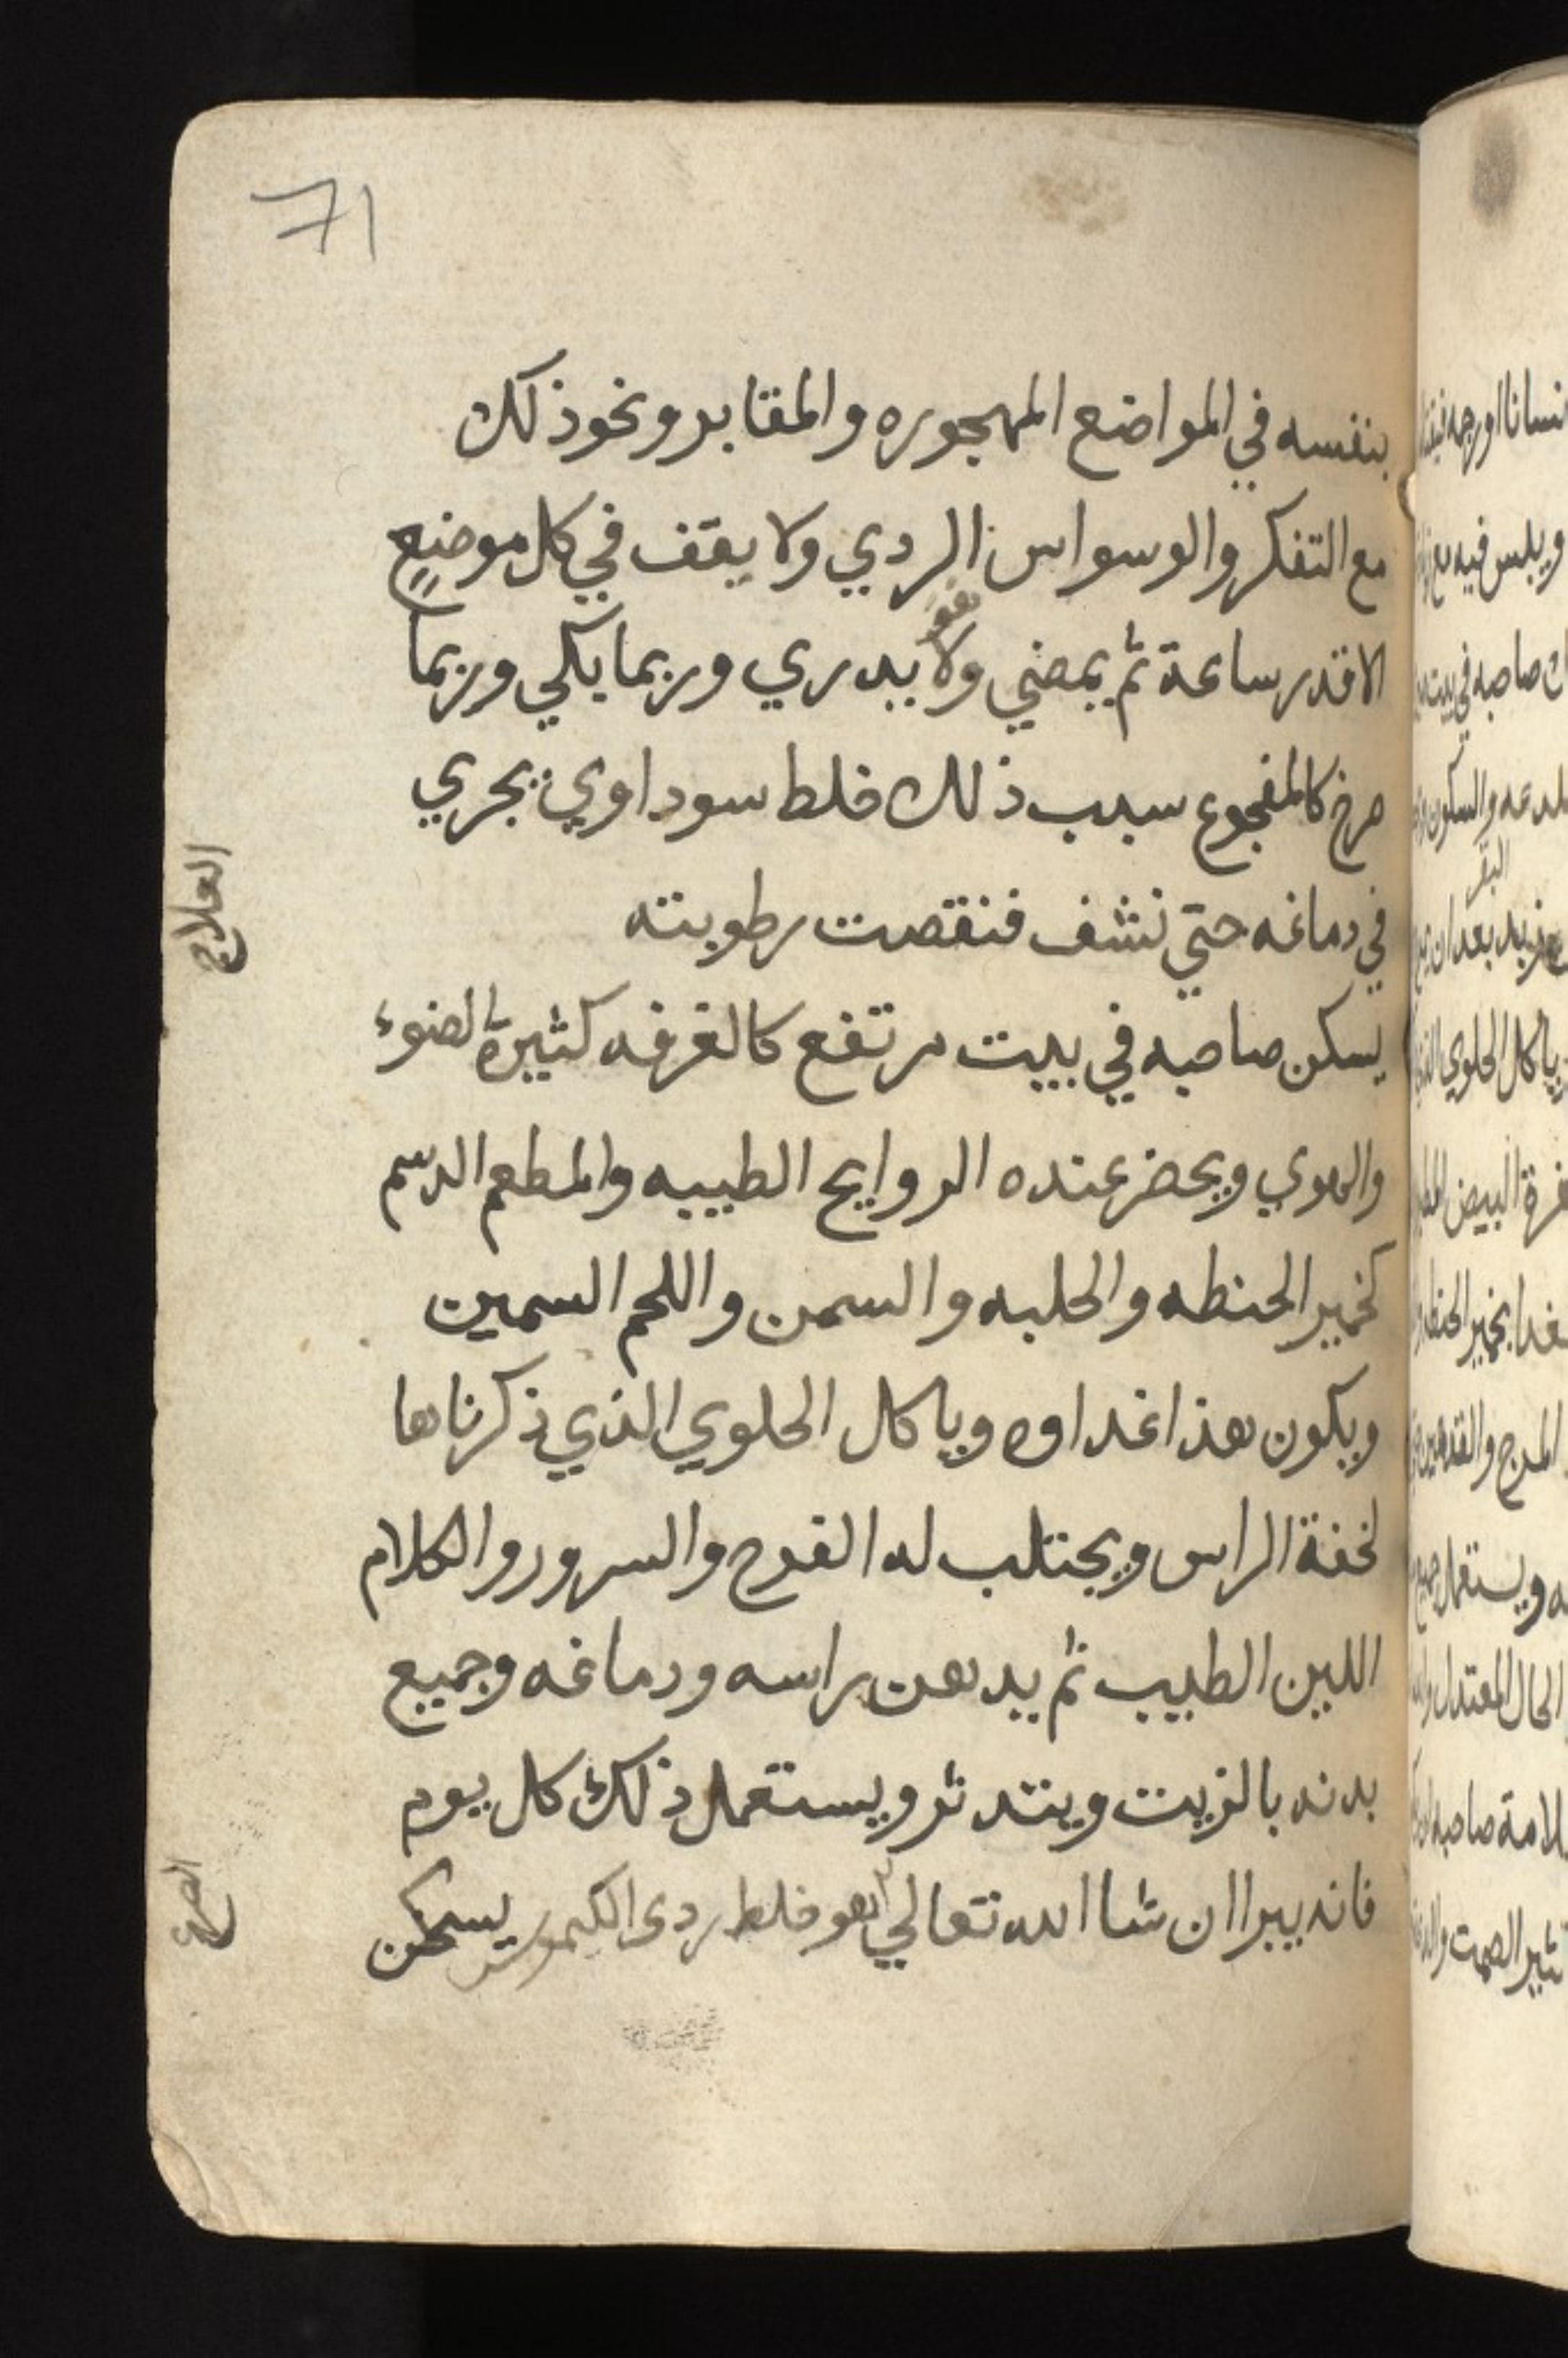 71
بنفسه في المواضع المهجوره والمقابر ونحو ذلك
مع التفكر والوسواس الردي ولا يقف في كل موضع
الا قدر ساعة ثم يمضي ولا يدري وربما يبكي وربما
صرخ كالمفجوع سبب ذلك خلط سوداوي يجري
في دماغه حتي نشف فنقصت رطوبته
العلاج
يسكن صاحبه في بيت مرتفع كالغرفه كثيرة الضوء
والهوي ويحضر عنده الروايح الطيبه والمطعم الدسم
كخمير الحنطه والحلبه والسمن واللحم السمين
ويكون هذا غداوه وياكل الحلوي الذي ذكرناها
لخفة الراس ويجتلب له الفرح والسرور والكلام
اللين الطيب ثم يدهن راسه ودماغه وجميع
بدنه بالزيت ويتدثر ويستعمل ذلك كل يوم
فانه يبرا ان شا الله تعالي هو خلط ردى الكيموس يسكن
الصرع